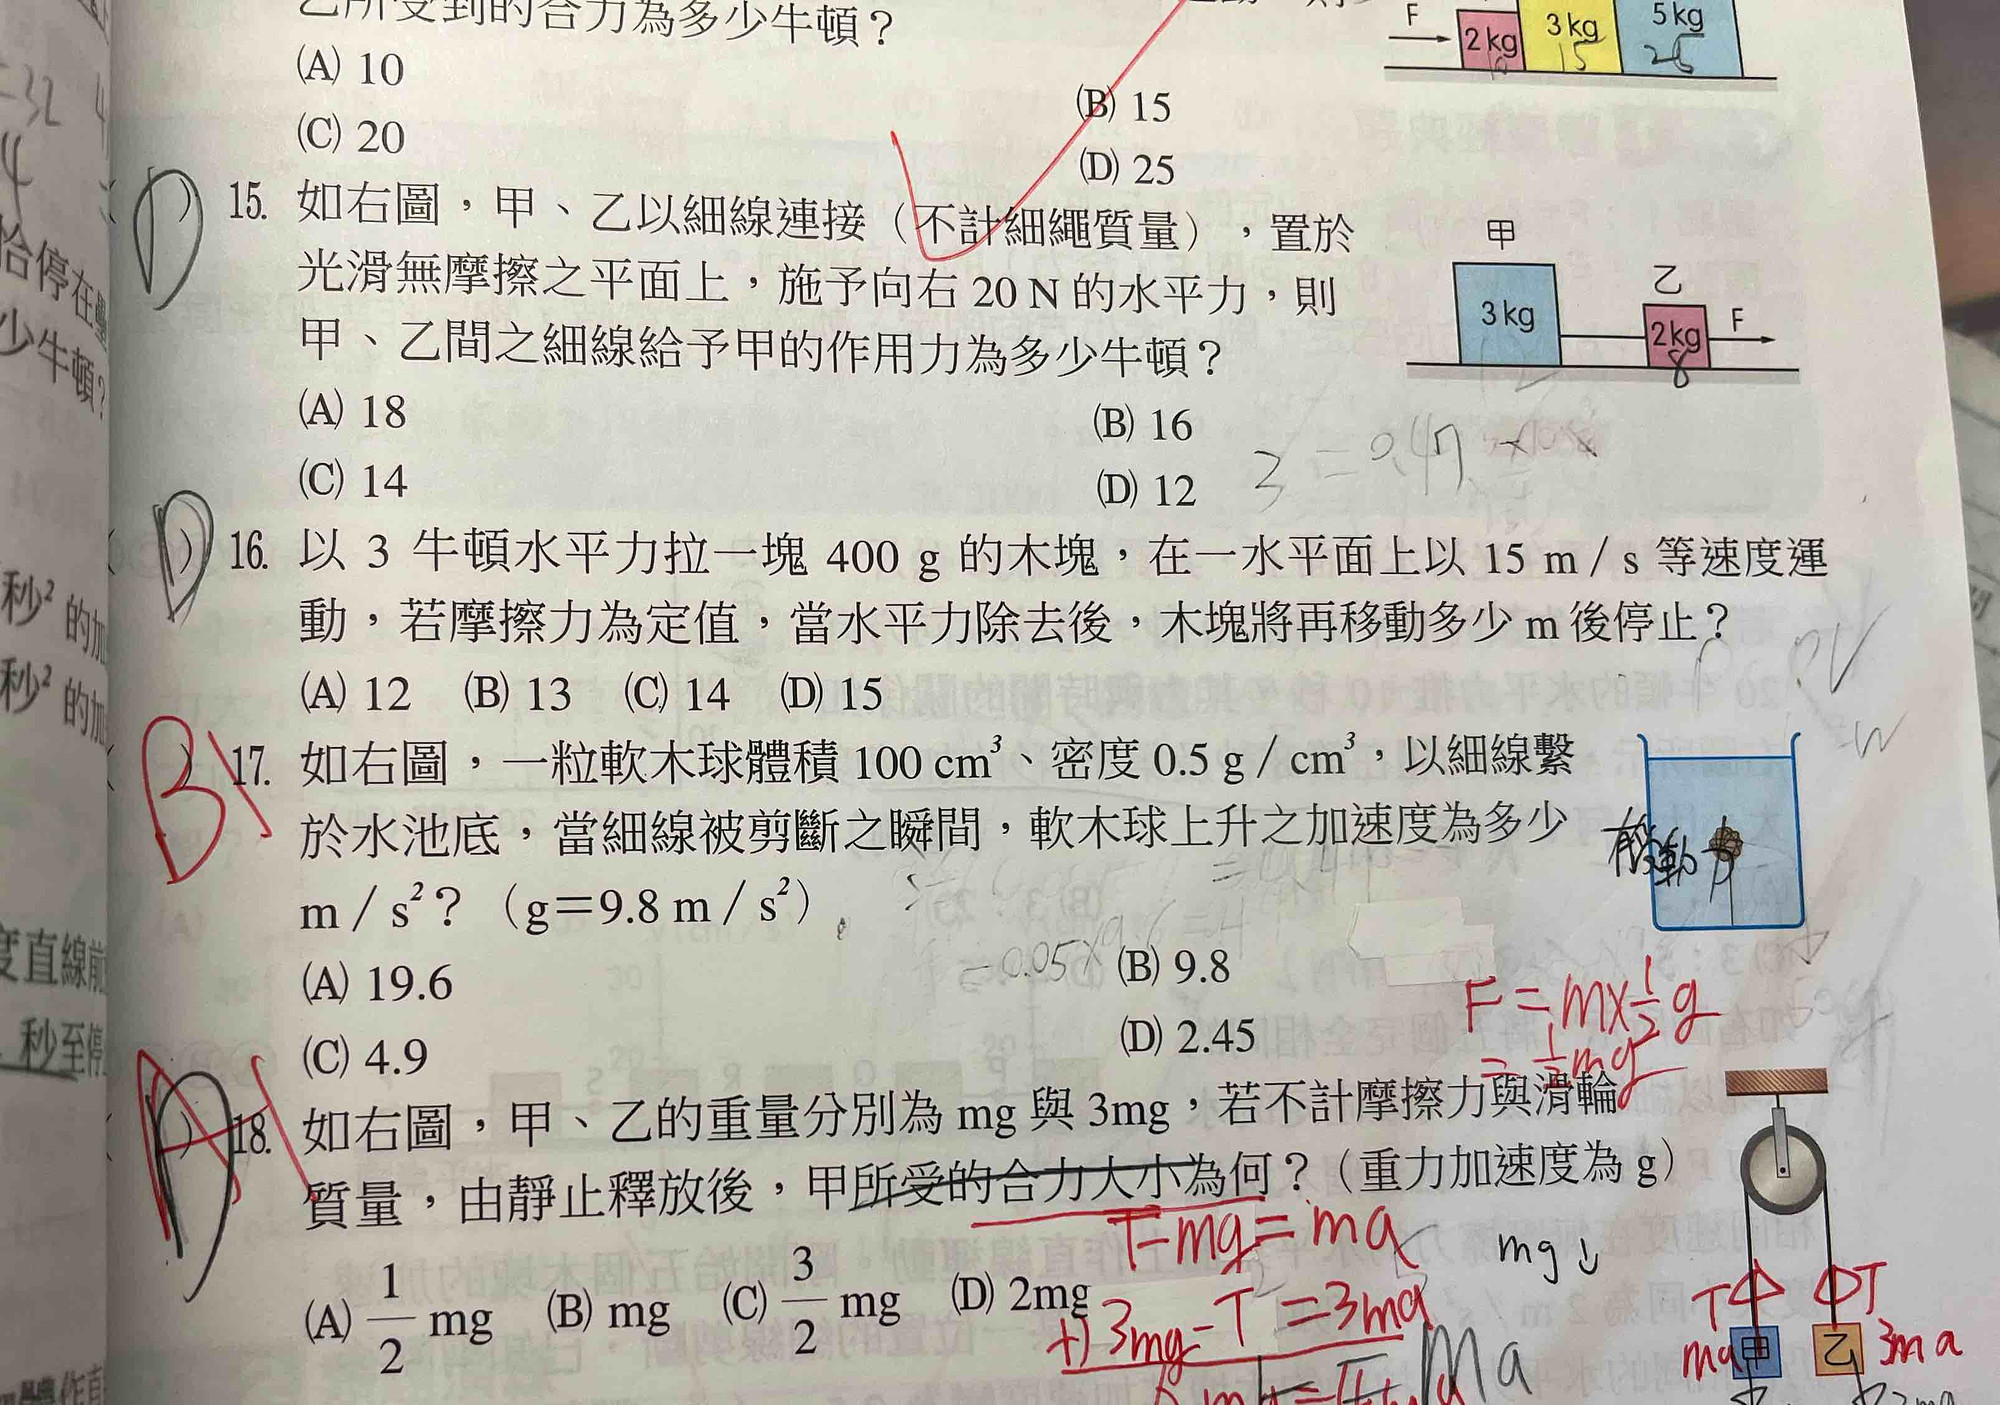 乙所受到的合力為多少牛頓？
F
2 kg
3 kg
15
5 kg
25
(A) 10
(B) 15
(C) 20
(D) 25
D
15. 如右圖，甲、乙以細線連接（不計細繩質量），置於
光滑無摩擦之平面上，施予向右 20 N 的水平力，則
甲、乙間之細線給予甲的作用力為多少牛頓？
甲
3 kg
乙
2 kg
8
F
(A) 18
(B) 16
(C) 14
(D) 12
D
16. 以 3 牛頓水平力拉一塊 400 g 的木塊，在一水平面上以 15 m / s 等速度運
動，若摩擦力為定值，當水平力除去後，木塊將再移動多少 m 後停止？
(A) 12 (B) 13 (C) 14 (D) 15
B
17. 如右圖，一粒軟木球體積 100 cm³、密度 0.5 g / cm³，以細線繫
於水池底，當細線被剪斷之瞬間，軟木球上升之加速度為多少
m / s²？（g＝9.8 m / s²）
(A) 19.6
(B) 9.8
(C) 4.9
(D) 2.45
F = m×½g
= ½mg
A
18. 如右圖，甲、乙的重量分別為 mg 與 3mg，若不計摩擦力與滑輪
質量，由靜止釋放後，甲所受的合力大小為何？（重力加速度為 g）
T-mg = ma
mg↓
(A) 1/2 mg (B) mg (C) 3/2 mg (D) 2mg
+) 3mg - T = 3ma
T
T
ma
甲
乙
3ma
ma
恰停在
少牛頓？
秒² 的加
秒² 的加
度直線前
秒至停